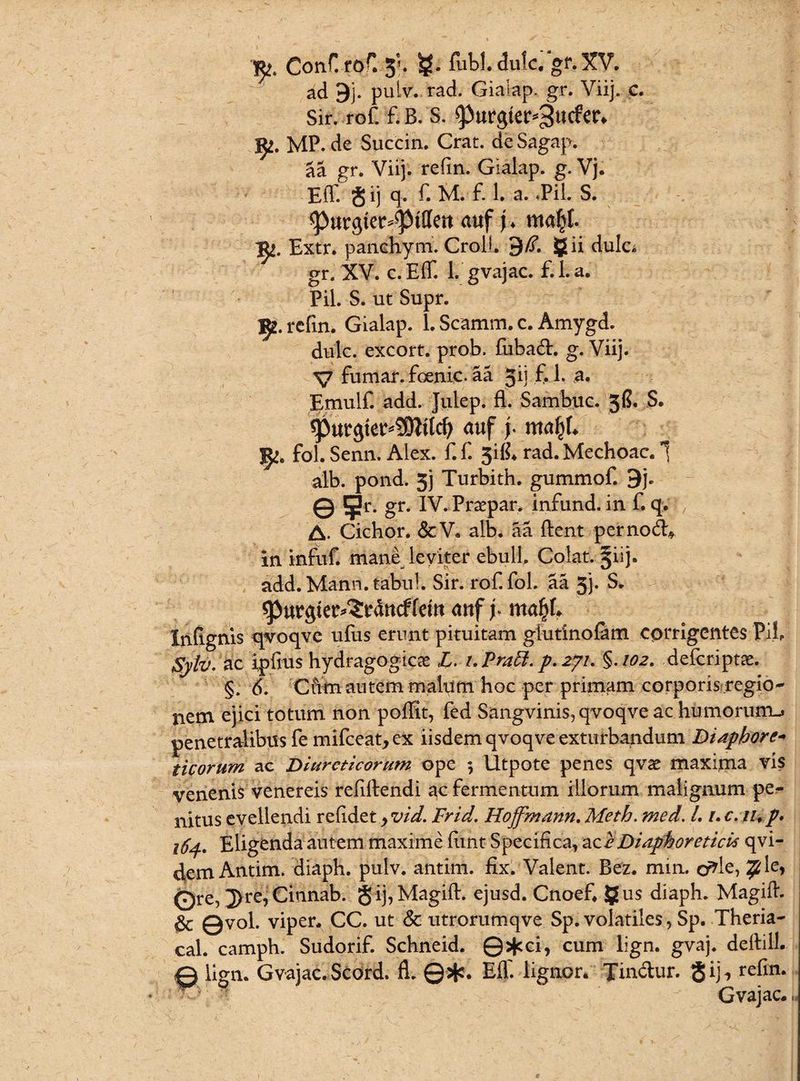 ℞. Conſ. roſ. ʒj. ☿. ſubl. dulc. gr. XV.
ad ℈j. pulv. rad. Gialap. gr. Viij. c.
Sir. roſ. f. B. S. Purgier-Zucker.
℞. MP. de Succin. Crat. de Sagap.
āā gr. Viij. reſin. Gialap. g. Vj.
Eſſ. ☿ij q. ſ. M. f. l. a. Pil. S.
Purgier-Pillen auf j. mahl.
℞. Extr. panchym. Croll. ℈ß. ☿ii dulc.
gr. XV. c. Eſſ. l. gvajac. f. l. a.
Pil. S. ut Supr.
℞. reſin. Gialap. l. Scamm. c. Amygd.
dulc. excort. prob. ſubact. g. Viij.
▽ fumar. fœnic. āā ʒij f. l. a.
Emulſ. add. Julep. fl. Sambuc. ʒß. S.
Purgier-Milch auf j. mahl.
℞. fol. Senn. Alex. ſ. ſ. ʒiß. rad. Mechoac.
alb. pond. ʒj Turbith. gummoſ. ℈j.
🜔 ♁r. gr. IV. Præpar. infund. in ſ. q.
🜂. Cichor. &V. alb. āā ſtent pernoct.
in infuſ. mane leviter ebull. Colat. ℥iij.
add. Mann. tabul. Sir. roſ. ſol. āā ʒj. S.
Purgier-Träncklein auf j. mahl.
Inſignis qvoqve uſus erunt pituitam glutinoſam corrigentes Pil.
Sylv. ac ipſius hydragogicæ L. 1. Pract. p. 271. §. 102. deſcriptæ.
§. 6. Cùm autem malum hoc per primam corporis regio-
nem ejici totum non poſſit, ſed Sangvinis, qvoqve ac humorum
penetralibus ſe miſceat, ex iisdem qvoqve exturbandum Diaphore-
ticorum ac Diureticorum ope ; Utpote penes qvæ maxima vis
venenis venereis reſiſtendi ac fermentum illorum malignum pe-
nitus evellendi reſidet, vid. Frid. Hoffmann. Meth. med. l. 1. c. 11. p.
164. Eligenda autem maximè ſunt Specifica, ac è Diaphoreticis qvi-
dem Antim. diaph. pulv. antim. fix. Valent. Bez. min. ♂le, ♃le,
☉re, ☽re, Cinnab. ☿ij, Magiſt. ejusd. Cnoef. ☿us diaph. Magiſt.
& 🜔vol. viper. CC. ut & utrorumqve Sp. volatiles, Sp. Theria-
cal. camph. Sudorif. Schneid. 🜔✱ci, cum lign. gvaj. deſtill.
🜔 lign. Gvajac. Scord. fl. 🜔✱. Eſſ. lignor. Tinctur. ☿ij, reſin.
Gvajac.